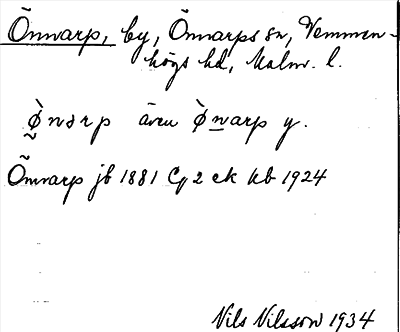 Önnarp, by, Önnarps sn, Vemmen-
högs hd, Malm. l.
ø̀narp även ø̀narp y.
Önnarp jb 1881 Cg 2 ek kb 1924
Nils Nilsson 1934